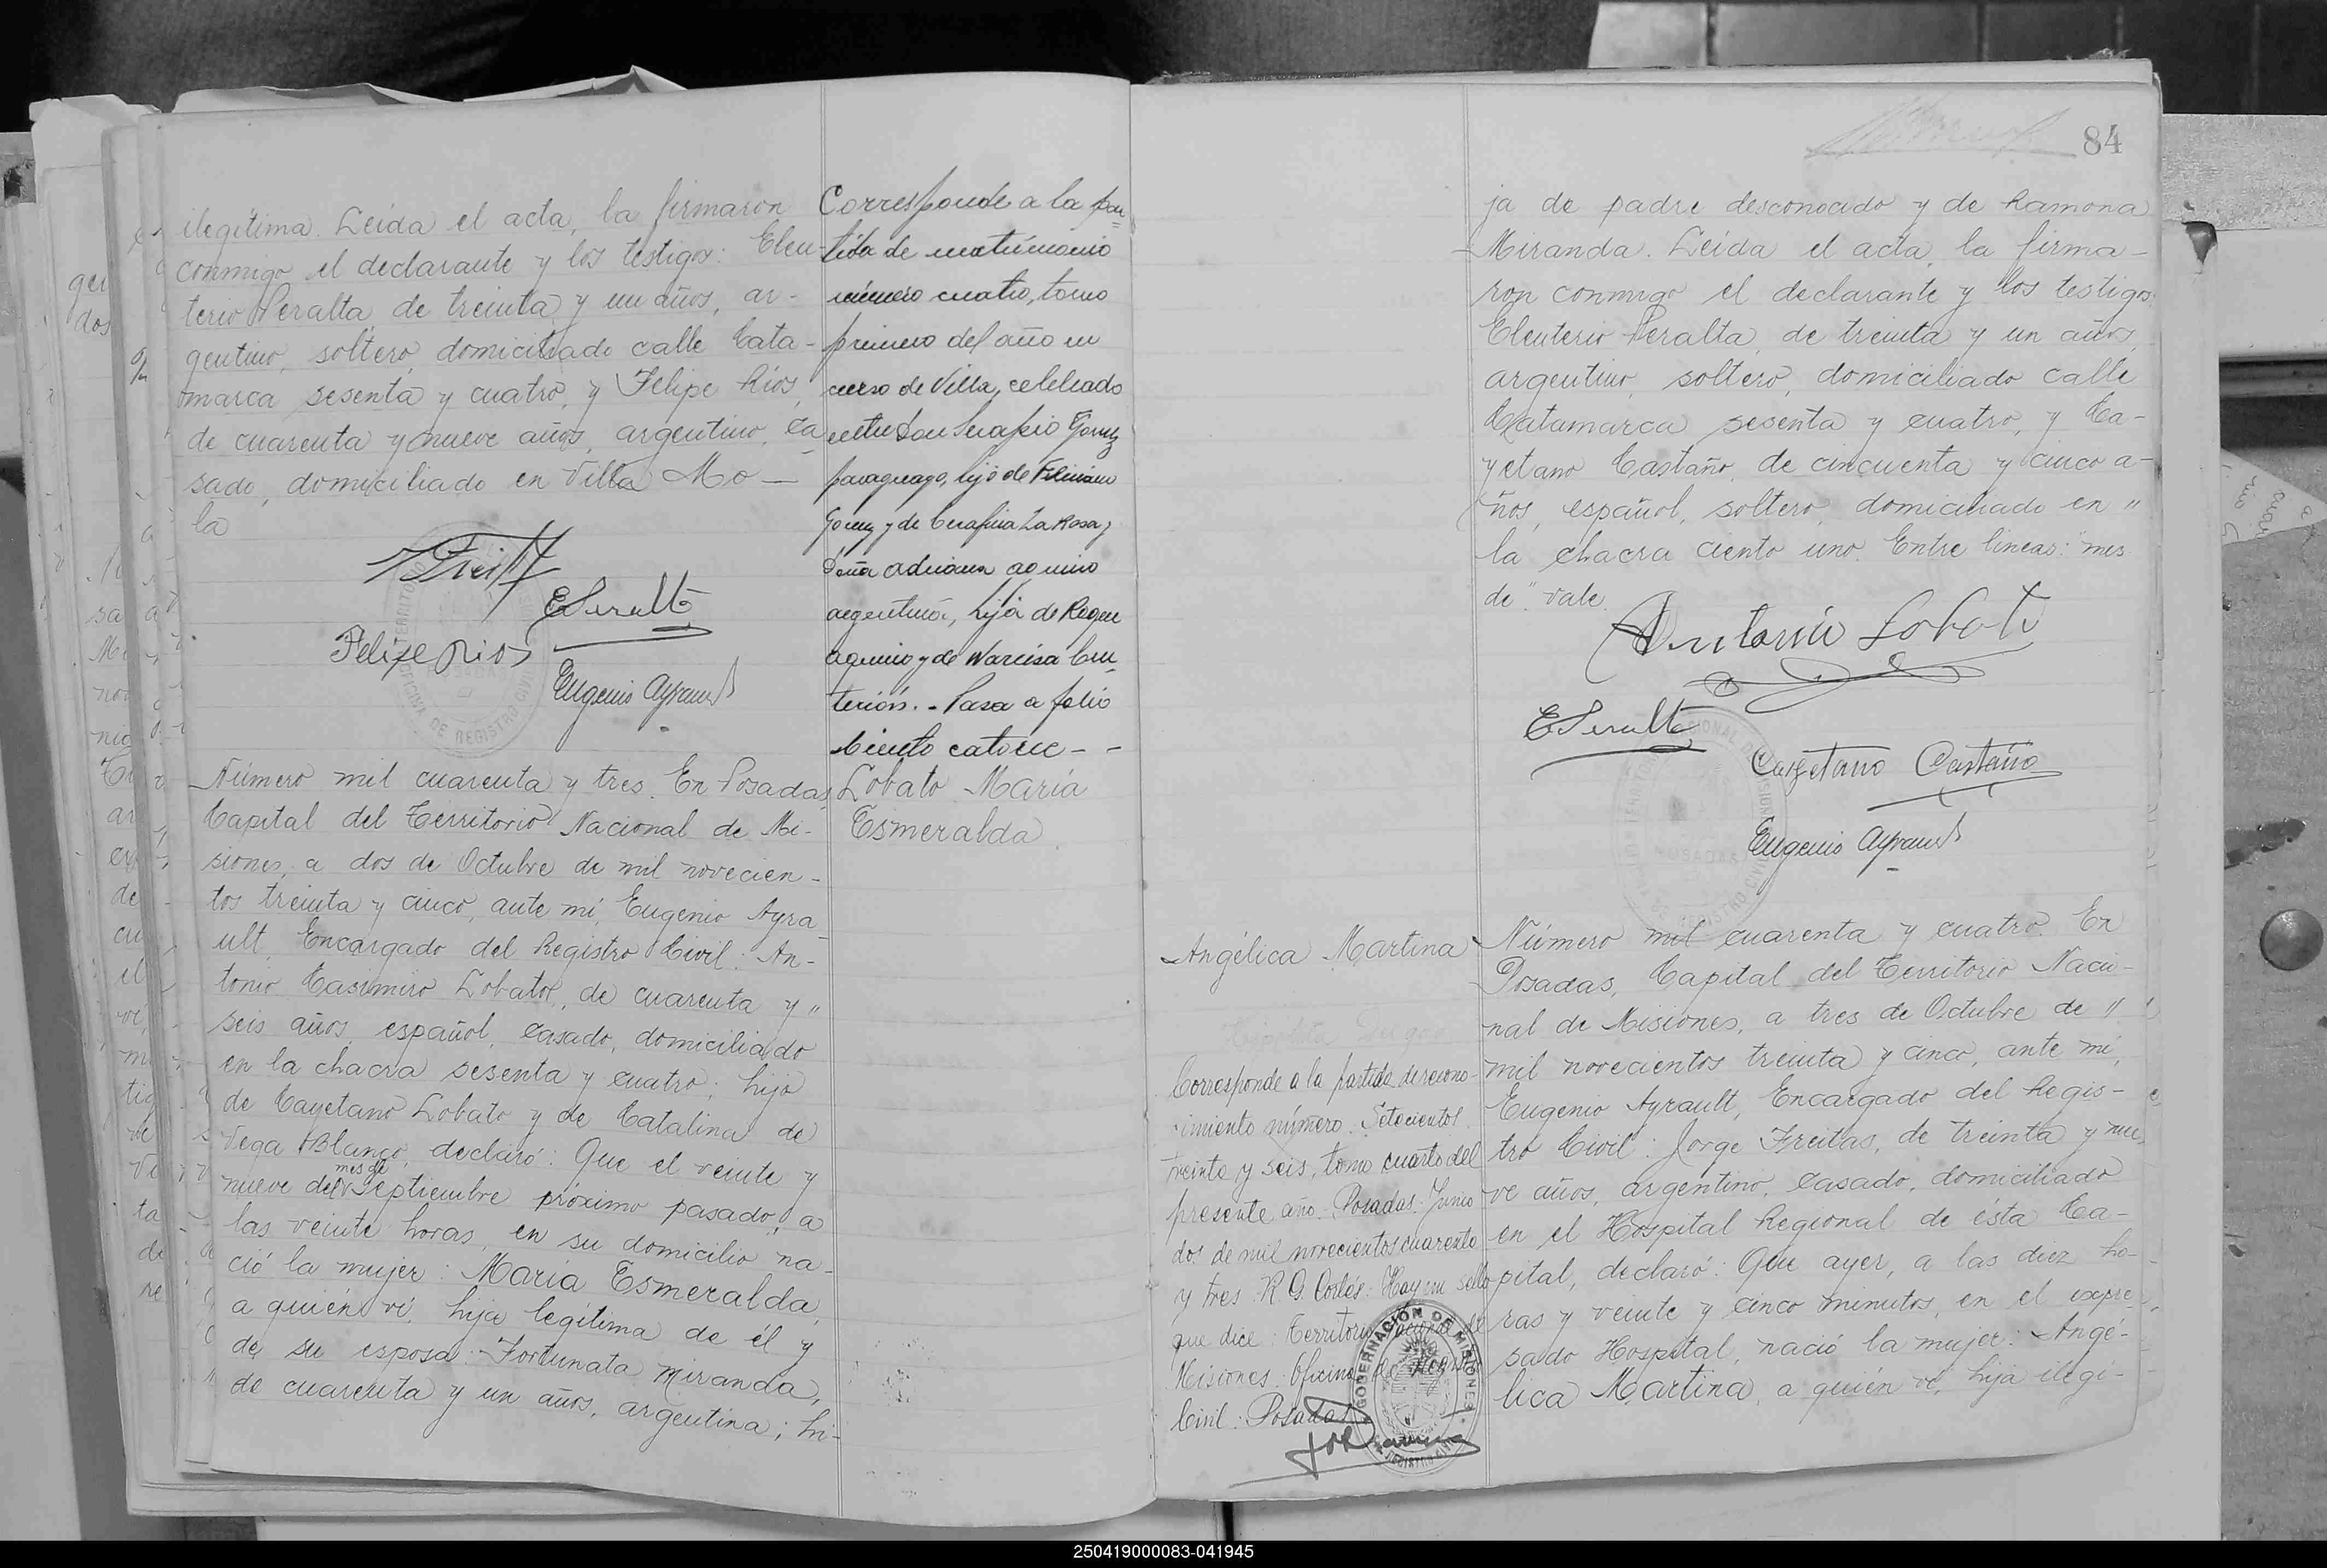 ilegítima. Leída el acta, la firmaron
conmigo el declarante y los testigos: Eleu-
terio Peralta de treinta y un años, ar-
gentino, soltero, domiciliado calle Cata-
marca sesenta y cuatro, y Felipe Ríos,
de cuarenta y nueve años, argentino, ca
sado, domiciliado en Villa Mo—
la
E Peralta
Felipe Rios
Eugenio Ayrault
Corresponde a la par
tida de matrimonio
número cuatro, tomo
primero del año en
curso de Villa, celebrado
entre Don Serapio Gomez
paraguayo, hijo de
Gomez y de Cerafina La Rosa y
Doña Adriana Aquino
argentina, hija de
Aquino y de Narcisa Cen
terión. - Pasa a folio
Ciento catorce - -
Número mil cuarenta y tres. En Posadas
Capital del Territorio Nacional de Mi-
siones, a dos de Octubre de mil novecien-
tos treinta y cinco, ante mí, Eugenio Ayra
ult, Encargado del Registro Civil: An-
tonio Casimiro Lobato, de cuarenta y "
seis años, español, casado, domiciliado
en la chacra sesenta y cuatro; hijo
de Cayetano Lobato y de Catalina de
Vega Blanco, declaró: Que el veinte y
mes de
nueve del Septiembre próximo pasado, a
las veinte horas, en su domicilio na-
ció la mujer: María Esmeralda,
a quién ví, hija legítima de él y
de su esposa: Fortunata Miranda,
de cuarenta y un años, argentina; hi-
Lobato María
Esmeralda
84
ja de padre desconocido y de Ramona
Miranda. Leída el acta, la firma-
ron conmigo el declarante y los testigos:
Eleuterio Peralta, de treinta y un años,
argentino, soltero, domiciliado calle
Catamarca sesenta y cuatro, y Ca-
yetano Castaño, de cincuenta y cinco a-
ños, español, soltero, domiciliado en "
la chacra ciento uno. Entre lineas: "mes
de". Vale.
Antonio Lobato
E Peralta
Cayetano Castaño
Eugenio Ayrault
Angélica Martina
Corresponde a la partida de recono-
cimiento número Setecientos
treinta y seis, tomo cuarto del
presente año. Posadas. Junio
dos de mil novecientos cuarenta
y tres. R. G. Cortés. Hay un sello
que dice: Territorio Nacional de
Misiones. Oficina de Registro
Civil: Posadas
GOBERNACIÓN DE MISIONES
Número mil cuarenta y cuatro. En
Posadas, Capital del Territorio Nacio-
nal de Misiones, a tres de Octubre de "
mil novecientos treinta y cinco, ante mí,
Eugenio Ayrault, Encargado del Regis-
tro Civil: Jorge Freitas, de treinta y nue
ve años, argentino, casado, domiciliado
en el Hospital Regional de ésta Ca-
pital, declaró: Que ayer, a las diez ho-
ras y veinte y cinco minutos, en el expre-
sado Hospital, nació la mujer: Angé-
lica Martina, a quién ví, hija ilegí-
250419000083-041945